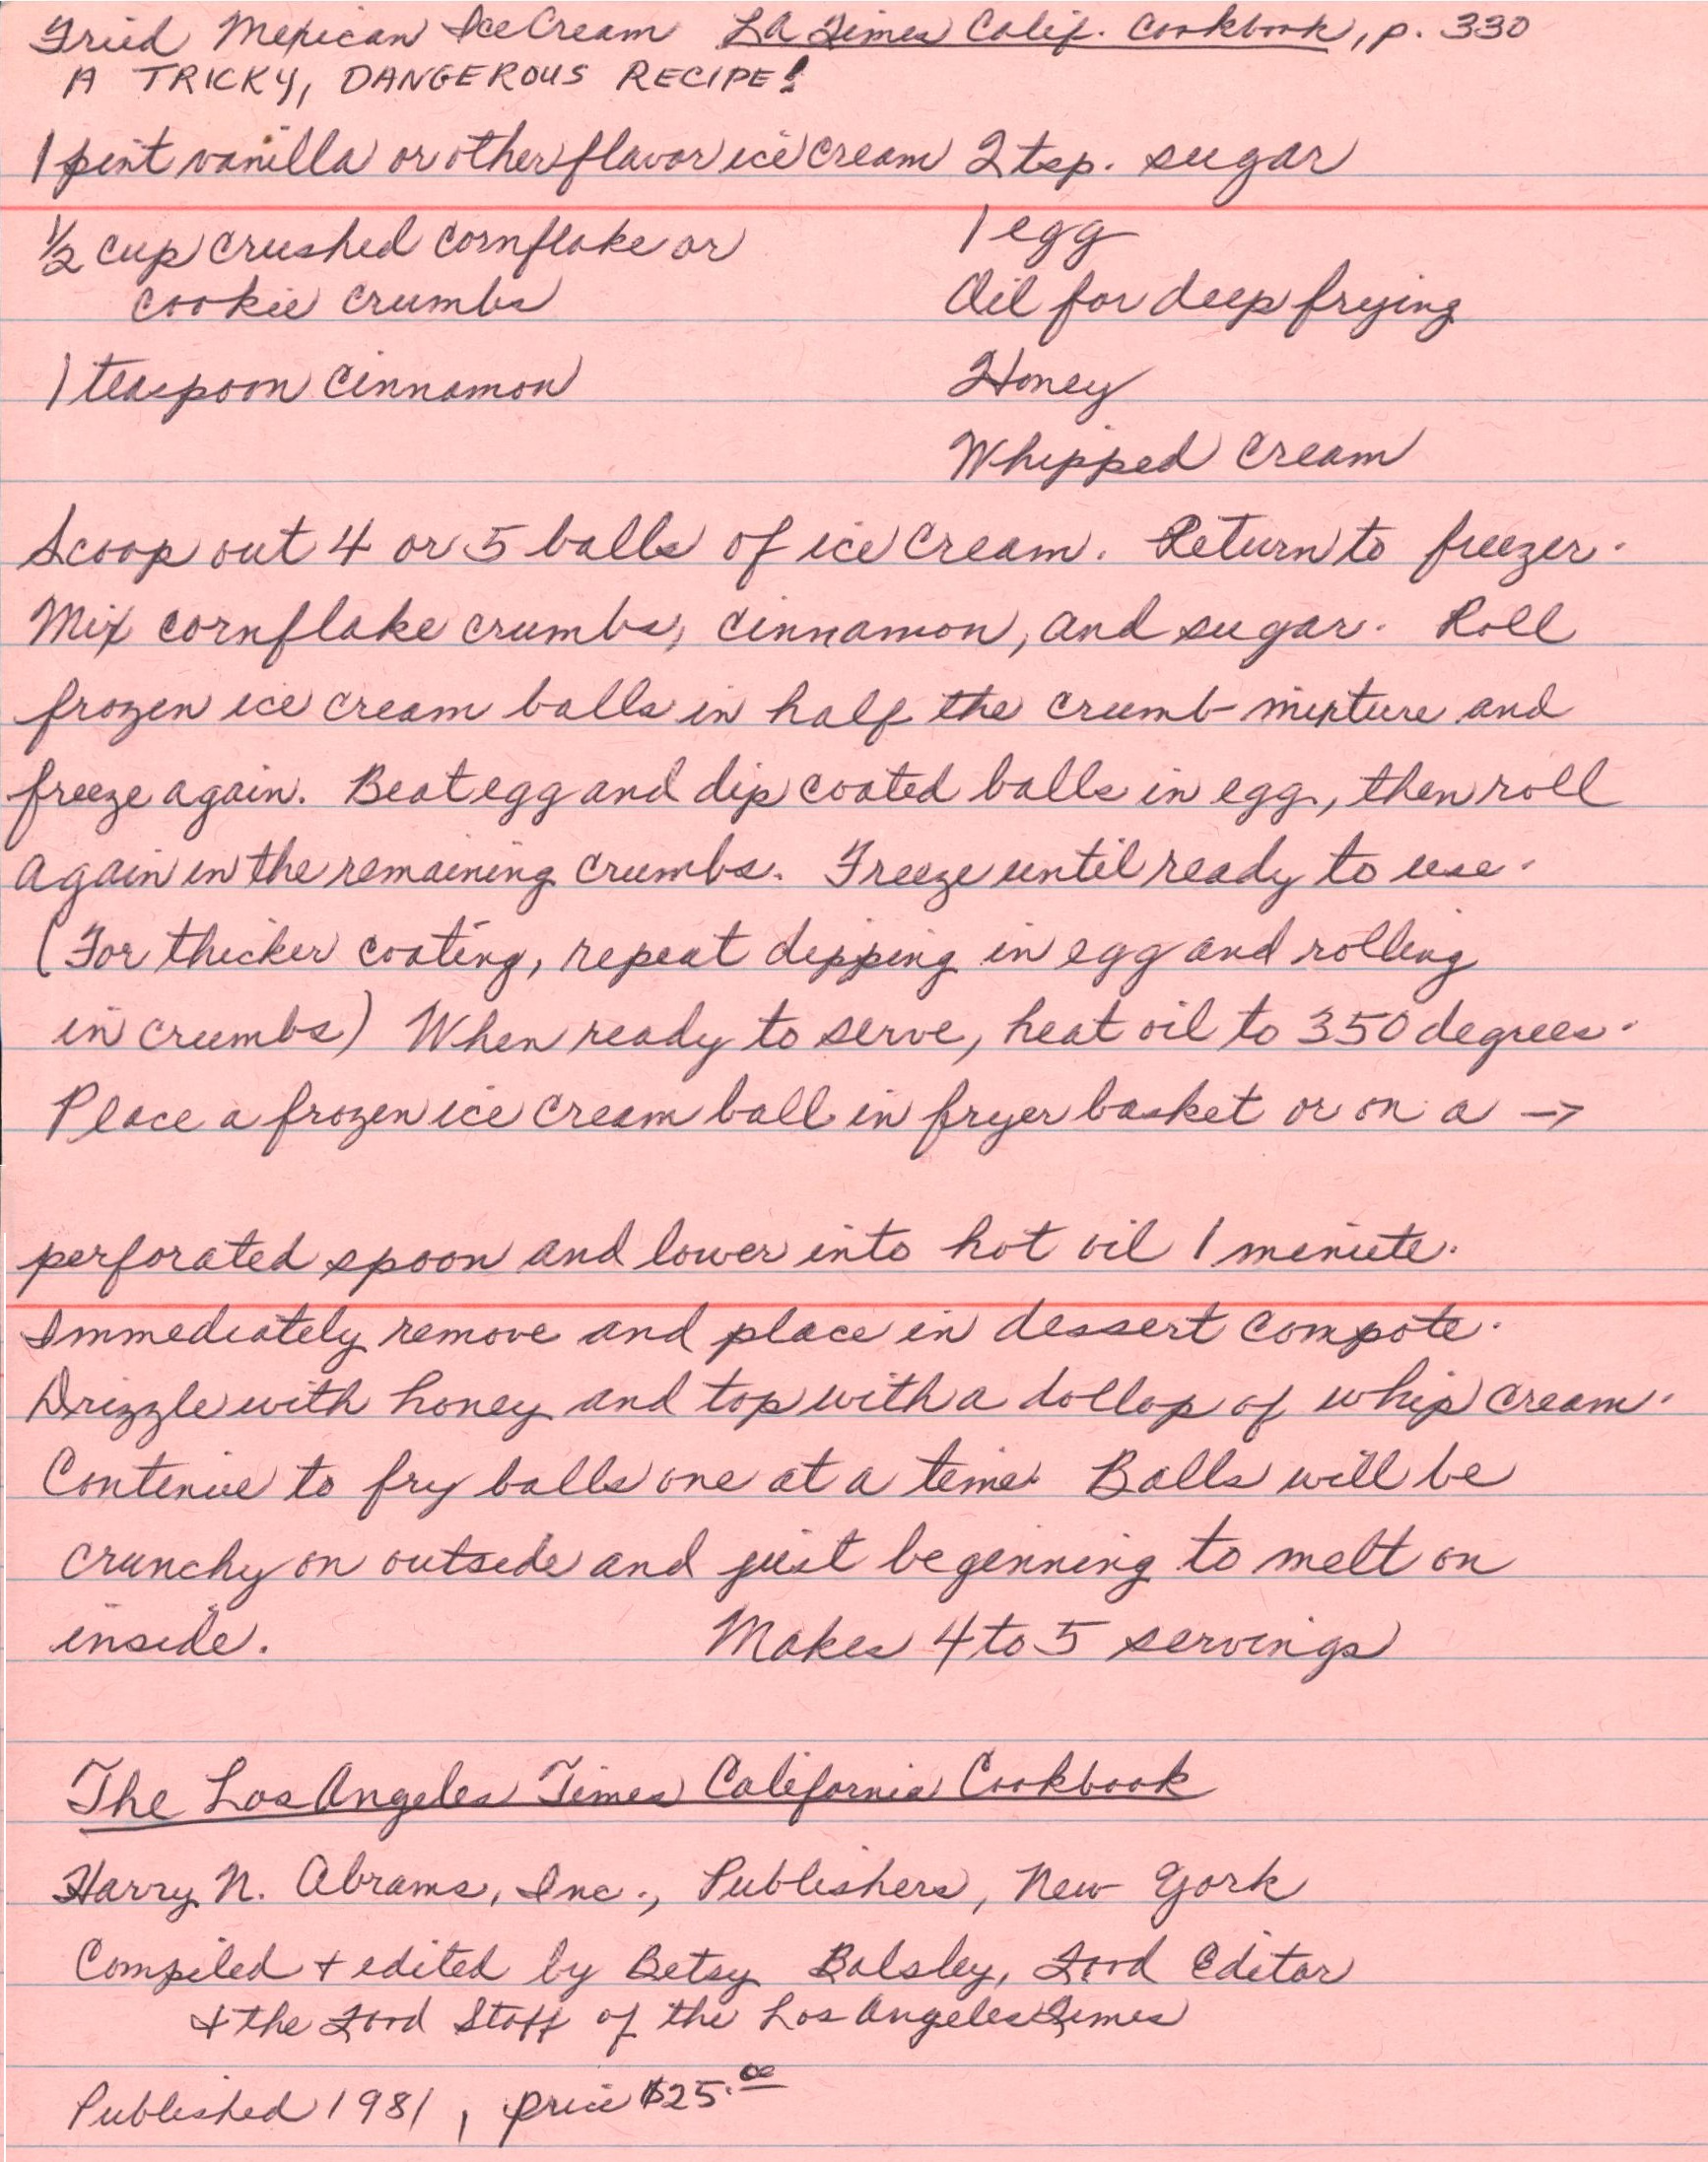 Fried Mexican Ice Cream LA Times Calif. Cookbook, p. 330
A TRICKY, DANGEROUS RECIPE!
1 pint vanilla or other flavor ice cream 2 tsp. sugar
½ cup crushed cornflake or 1 egg
cookie crumbs Oil for deep frying
1 teaspoon cinnamon Honey
Whipped cream
Scoop out 4 or 5 balls of ice cream. Return to freezer.
Mix cornflake crumbs, cinnamon, and sugar. Roll
frozen ice cream balls in half the crumb mixture and
freeze again. Beat egg and dip coated balls in egg, then roll
again in the remaining crumbs. Freeze until ready to use.
(For thicker coating, repeat dipping in egg and rolling
in crumbs) When ready to serve, heat oil to 350 degrees.
Place a frozen ice cream ball in fryer basket or on a →
perforated spoon and lower into hot oil 1 minute.
Immediately remove and place in dessert compote.
Drizzle with honey and top with a dollop of whip cream.
Continue to fry balls one at a time. Balls will be
crunchy on outside and just beginning to melt on
inside. Makes 4 to 5 servings
The Los Angeles Times California Cookbook
Harry N. Abrams, Inc., Publishers, New York
Compiled + edited by Betsy Balsley, Food Editor
+ the Food Staff of the Los Angeles Times
Published 1981, price $25.00